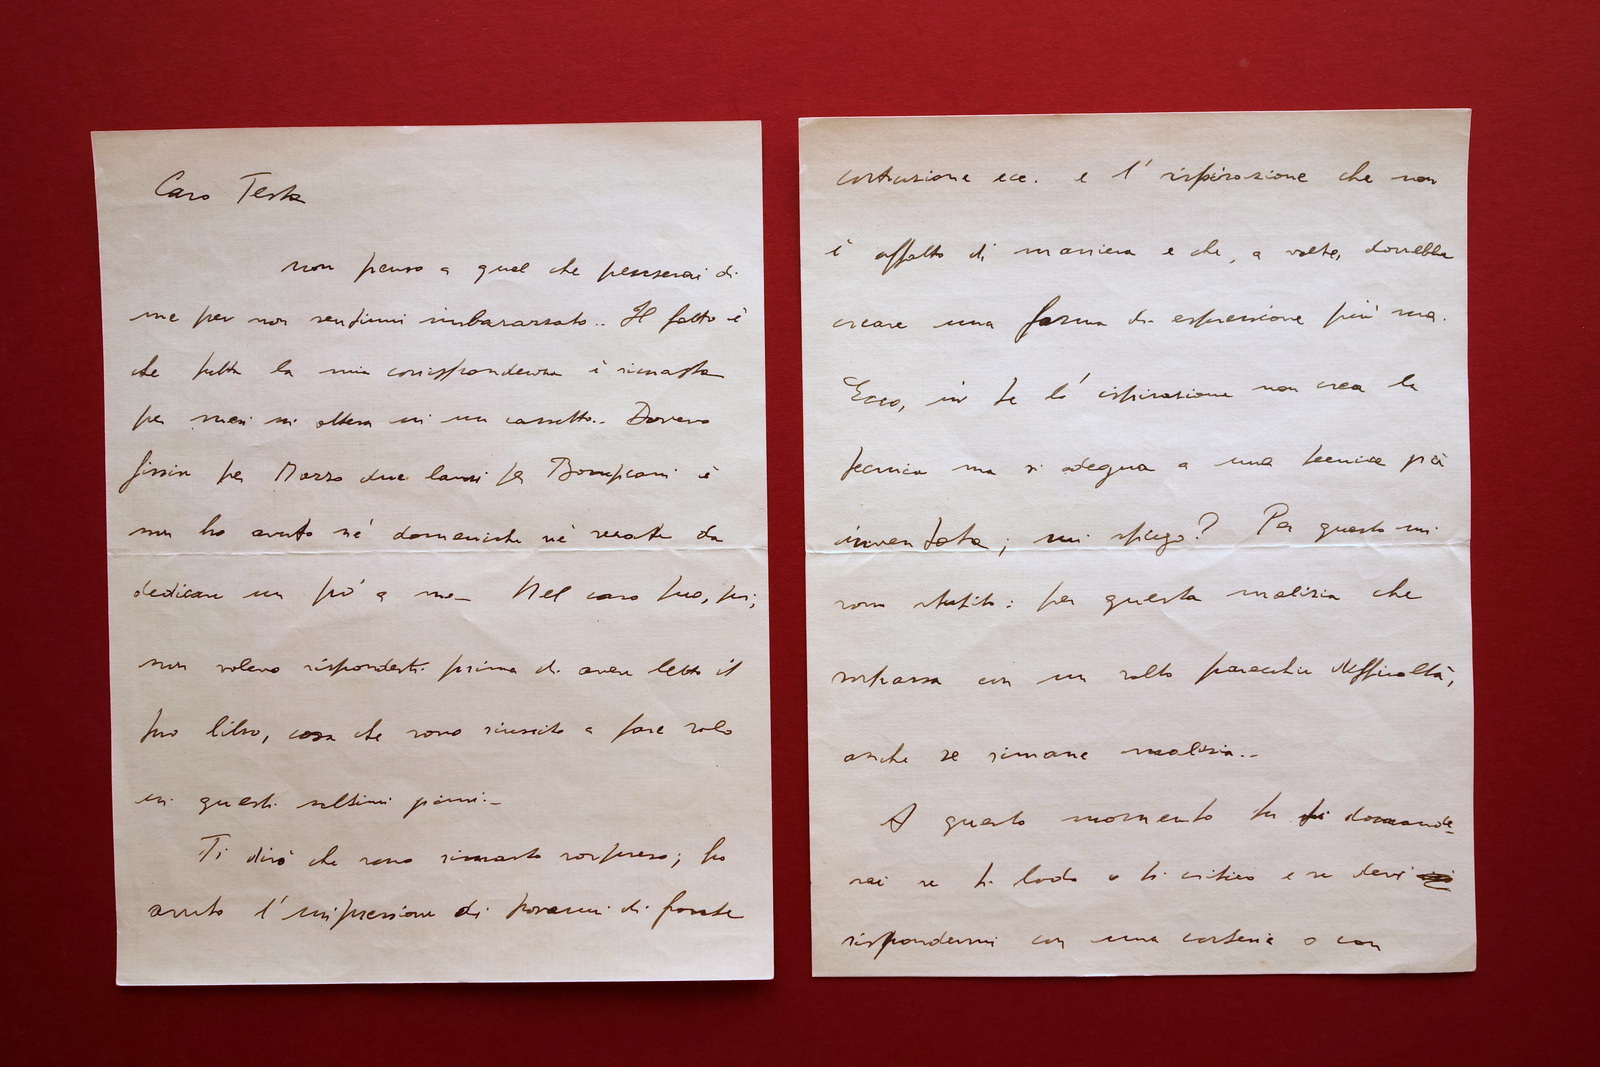 Caro Testa
non penso a quel che penserai di
me per non sentirmi imbarazzato.. Il fatto è
che tutta la mia corrispondenza è rimasta
per mesi in attesa in un cassetto.. Dovevo
finire per Marzo due lavori per Bompiani e
non ho avuto né domeniche né serate da
dedicare un po' a me_ Nel caso tuo, poi,
non volevo risponderti prima di avere letto il
tuo libro, cosa che sono riuscito a fare solo
in questi ultimi giorni._
Ti dirò che sono rimasto sorpreso; ho
avuto l'impressione di trovarmi di fronte
costruzione ecc. e l'ispirazione che non
è affatto di maniera e che, a volte, dovrebbe
creare una forma di espressione più sua.
Ecco, in te l'ispirazione non crea la
tecnica ma si adegua a una tecnica già
inventata; mi spiego? Per questo mi
sono stupito: per questa malizia che
sorpassa con un salto parecchie difficoltà,
anche se rimane malizia..
A questo momento tu ti domande-
rai se ti lodo o ti critico e se devi
rispondermi con una cortesia o con